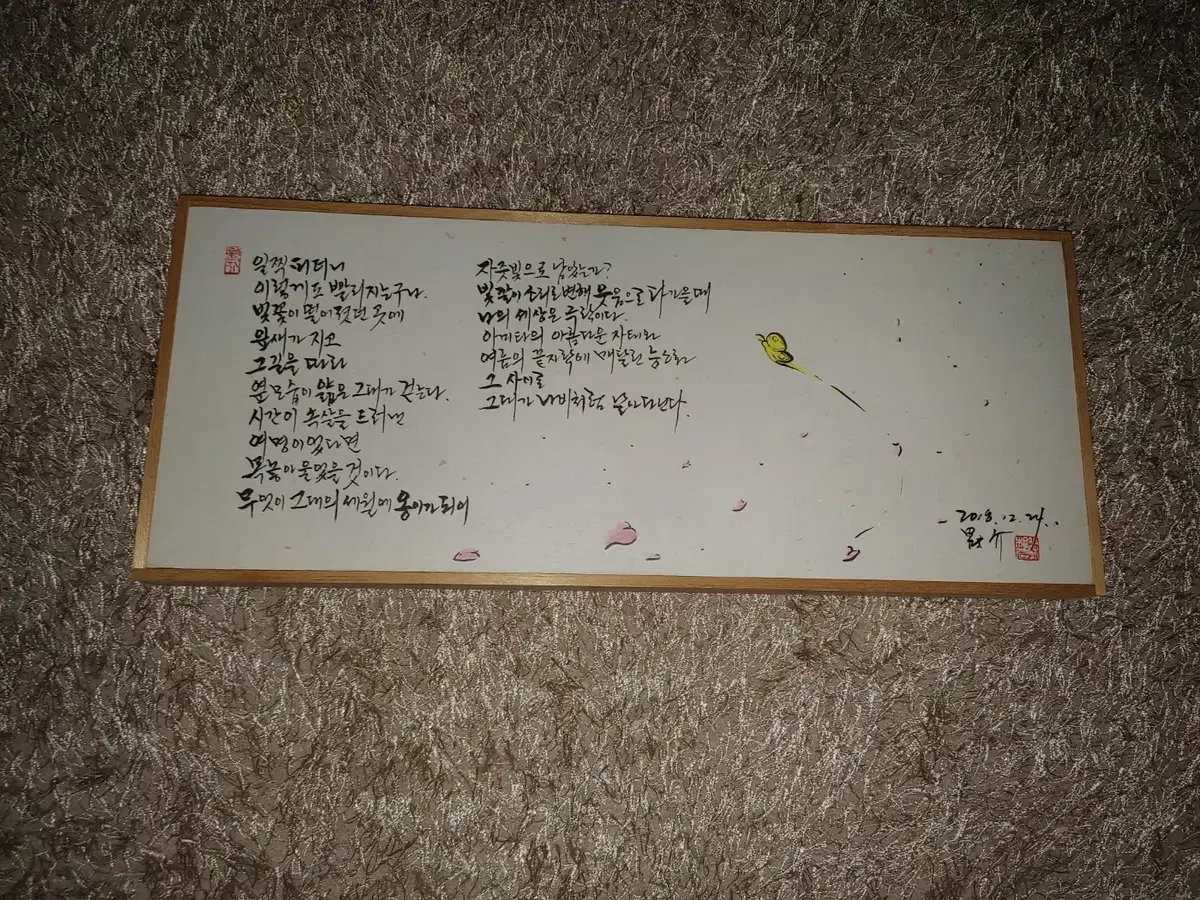 일찍 피더니
이렇게도 빨리 지는구나.
벚꽃이 떨어졌던 곳에
왕새가 지고
그 길을 따라
옆모습이 얇은 그대가 걷는다.
시간이 속살을 드러낸
여명이었다면
목놓아 울었을 것이다.
무엇이 그대의 세월에 옹이가 되어
자줏빛으로 남았는가?
빛깔이 소리로 변해 웃음으로 다가올 때
나의 세상은 추락이다.
아게타의 아름다운 자태와
여름의 끝자락에 매달린 능소화
그 사이로
그대가 나비처럼 날아다닌다.
2018.12.24..